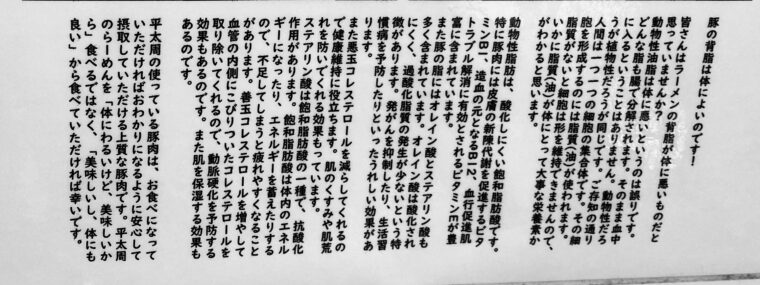 豚の背脂は体によいのです!
皆さんはラーメンの背脂が体に悪いものだと
思っていませんか?
動物性油脂は体に悪いというのは誤りです。
どんな脂も腸で分解されます。そのまま血中
に入るということはありません。動物性だろ
うが植物性だろうが同じです。ご存知の通り
人間は一つ一つの細胞の集合体です。その細
胞を形成するのには脂質(油)が使われます。
脂質がないと細胞は形を維持できませんので、
いかに脂質(油)が体にとって大事な栄養素か
がわかると思います。
動物性脂肪は、酸化しにくい飽和脂肪酸です。
特に豚肉には皮膚の新陳代謝を促進するビタ
ミンB1、造血の元となるB12、血行促進肌
トラブル解消に有効とされるビタミンEが豊
富に含まれています。
また豚の脂にはオレイン酸とステアリン酸も
多く含まれています。オレイン酸は酸化され
にくく、過酸化脂質の発生が少ないという特
徴があります。発がんを抑制したり、生活習
慣病を予防したりといったうれしい効果があ
ります。
また悪玉コレステロールを減らしてくれるの
で健康維持に役立ちます。肌のくすみや肌荒
れを防いでくれる効果もっています。
ステアリン酸は飽和脂肪酸の一種で、抗酸化
作用があります。飽和脂肪酸は体内のエネル
ギーになったり、エネルギーを蓄えたりする
ので、不足してしまうと疲れやすくなること
があります。善玉コレステロールを増やして
血管の内側にこびりついたコレステロールを
取り除いてくれるので、動脈硬化を予防する
効果もあるのです。また肌を保湿する効果も
あるのです。
平太周の使っている豚肉は、お食べになって
いただければおわかりになるように安心して
摂取していただける上質な豚肉です。平太周
のらーめんを「体にわるいけど、美味しいか
ら」食べるではなく、「美味しいし、体にも
良い」から食べていただければ幸いです。